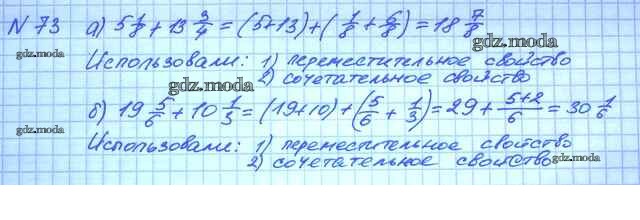 N 73 а) 5 1/8 + 13 3/4 = (5+13) + (1/8 + 6/8) = 18 7/8
Использовали: 1) переместительное свойство
2) сочетательное свойство
б) 19 5/6 + 10 1/3 = (19+10) + (5/6 + 1/3) = 29 + 5+2/6 = 30 1/6
Использовали: 1) переместительное свойство
2) сочетательное свойство
gdz.moda
gdz.moda
gdz.moda
gdz.moda
gdz.moda
gdz.moda
gdz.moda
gdz.moda